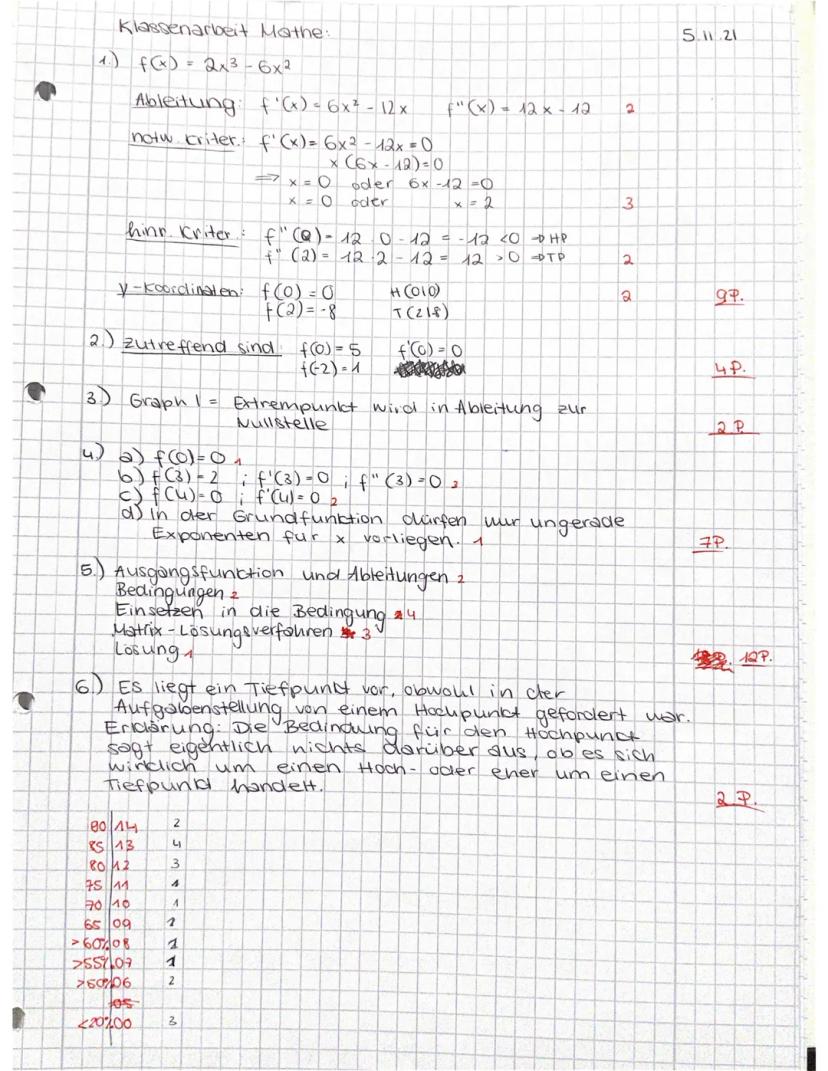 Klassenarbeit Mathe: 5.11.21
1.) f(x) = 2x³ - 6x²
Ableitung: f'(x) = 6x² - 12x f"(x) = 12x - 12 2
notw. Kriter.: f'(x) = 6x² - 12x = 0
x(6x - 12) = 0
⇒ x = 0 oder 6x - 12 = 0
x = 0 oder x = 2 3
hinr. Kriter.: f"(0) = 12 · 0 - 12 = -12 < 0 ⇒ HP
f"(2) = 12 · 2 - 12 = 12 > 0 ⇒ TP 2
y-Koordinaten: f(0) = 0 H(0|0) 2 9P.
f(2) = -8 T(2|8)
2.) zutreffend sind: f(0) = 5 f'(0) = 0
f(-2) = 1 4P.
3.) Graph 1 = Extrempunkt wird in Ableitung zur
Nullstelle 2P.
4.) a) f(0) = 0 1
b) f(3) = 2 ; f'(3) = 0 ; f"(3) = 0 2
c) f(4) = 0 ; f'(4) = 0 2
d) In der Grundfunktion dürfen nur ungerade
Exponenten für x vorliegen. 1 7P.
5.) Ausgangsfunktion und Ableitungen 2
Bedingungen 2
Einsetzen in die Bedingung 4
Matrix-Lösungsverfahren 3
Lösung 1 12P.
6.) Es liegt ein Tiefpunkt vor, obwohl in der
Aufgabenstellung von einem Hochpunkt gefordert war.
Erklärung: Die Bedindung für den Hochpunkt
sagt eigentlich nichts darüber aus, ob es sich
wirklich um einen Hoch- oder eher um einen
Tiefpunkt handelt. 2P.
90 14 2
85 13 4
80 12 3
75 11 1
70 10 1
65 09 1
>60% 08 1
>55% 07 1
>50% 06 2
05
<20% 00 3